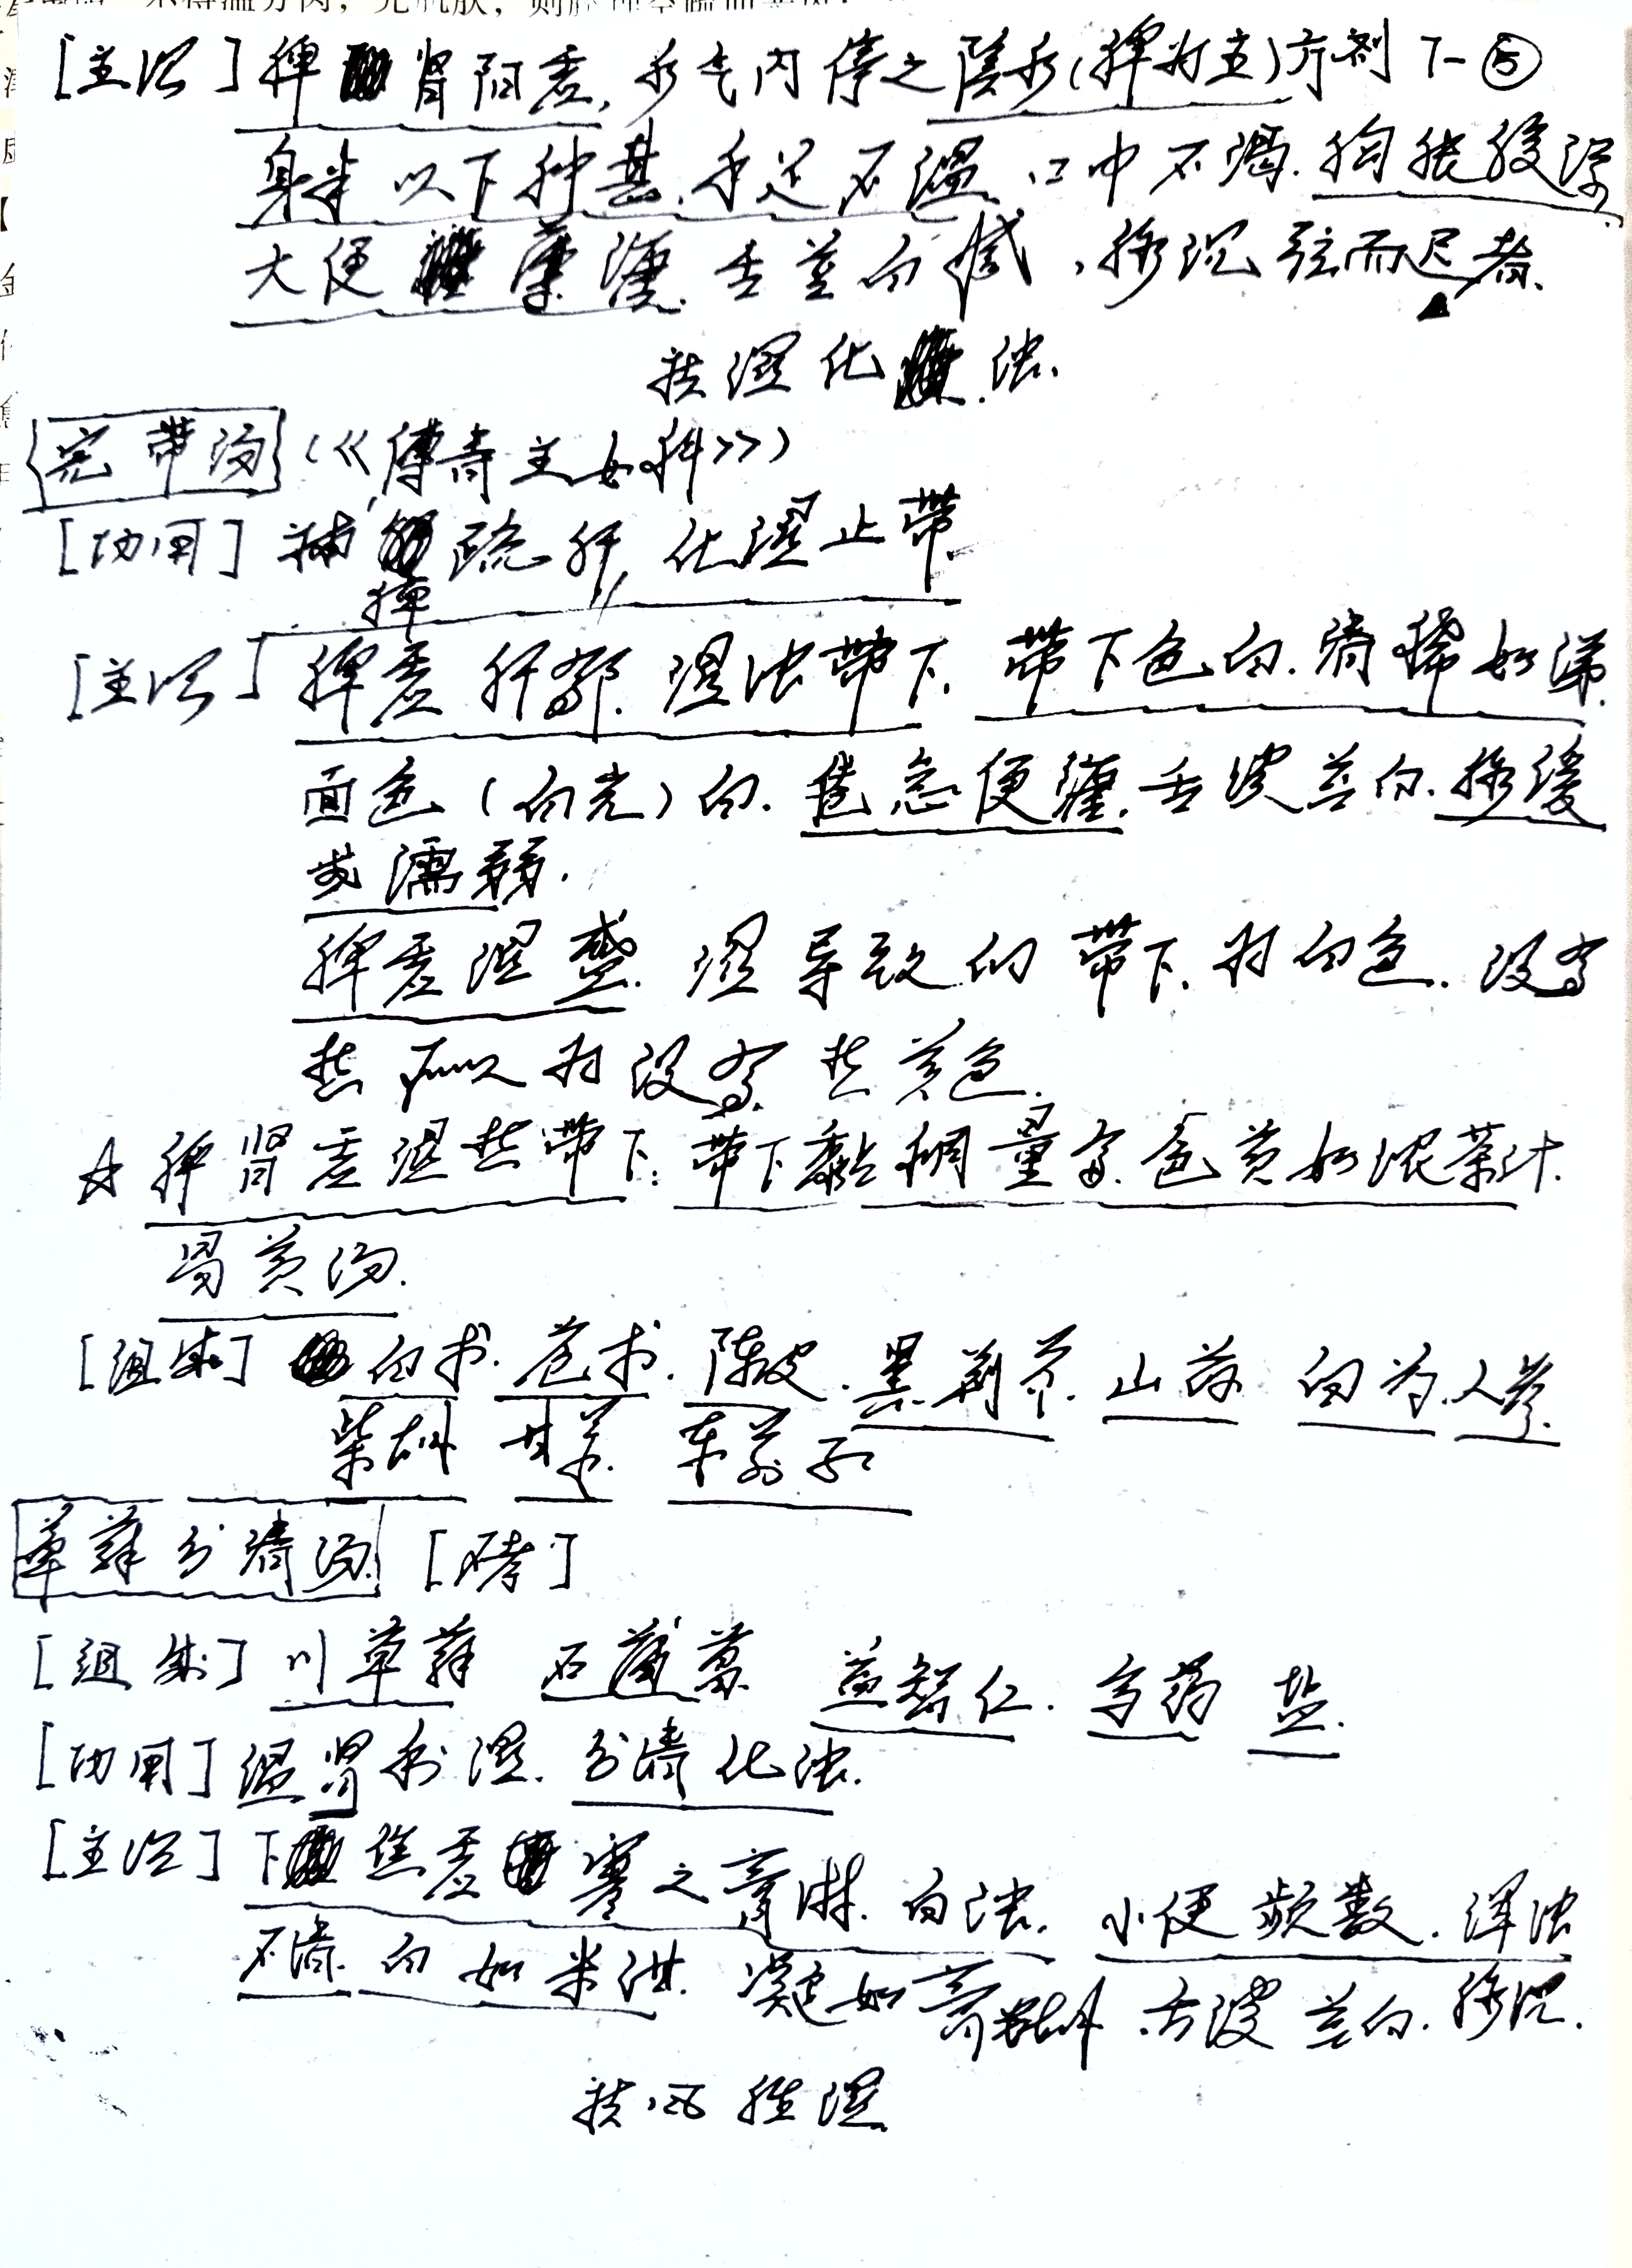 [主治] 脾肾阳虚,水气内停之阴水(脾为主)方剂下-⑤
身半以下肿甚.手足不温.口中不渴.胸腹胀满
大便溏.舌苔白腻,脉沉弦而迟者.
祛湿化浊.
完带汤(《傅青主女科》)
[功用] 补脾疏肝,化湿止带
[主治] 脾虚肝郁.湿浊带下.带下色白.清稀如涕.
面色(白光)白.倦怠便溏.舌淡苔白.脉缓
或濡弱.
脾虚湿盛.湿导致的带下.为白色.没有
热所以为没有热黄色.
☆脾肾虚湿热带下:带下黏稠量多.色黄如浓茶汁.
易黄汤.
[组成] 白术.苍术.陈皮.黑荆芥.山药.白芍.人参.
柴胡 甘草.车前子
萆薢分清汤.
[组成] 川萆薢 石菖蒲 益智仁.乌药 盐.
[功用] 温肾利湿.分清化浊.
[主治] 下焦虚寒之膏淋.白浊.小便频数.浑浊
不清.白如米泔.凝如膏糊.舌淡苔白.脉沉.
祛风胜湿